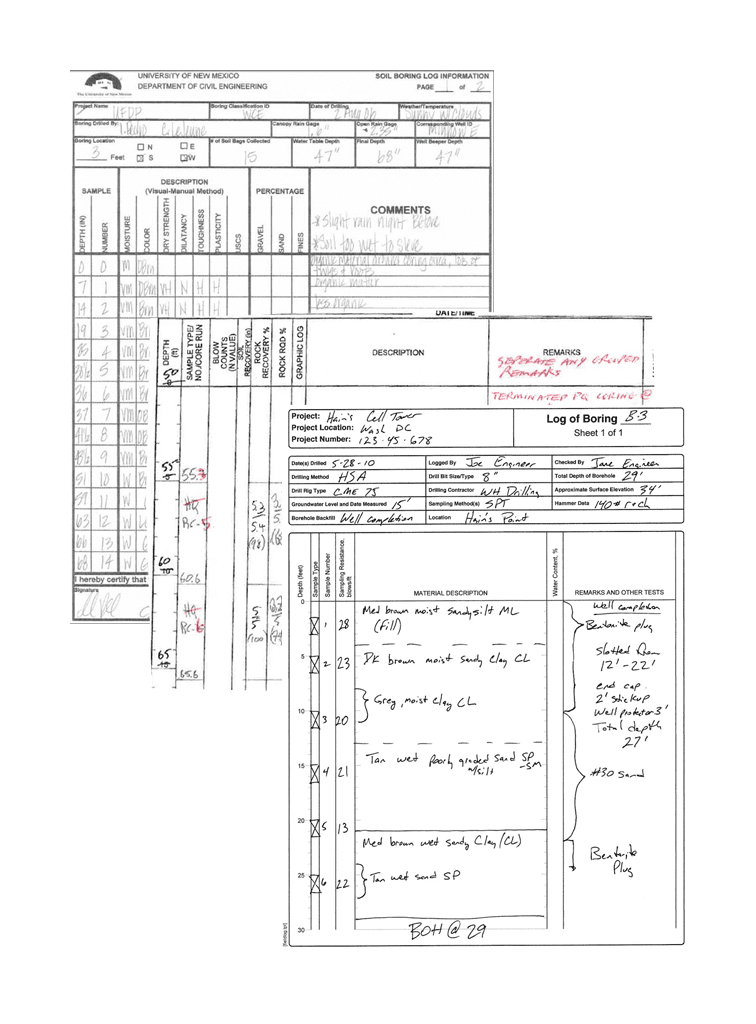 UNIVERSITY OF NEW MEXICO
DEPARTMENT OF CIVIL ENGINEERING
The University of New Mexico
SOIL BORING LOG INFORMATION
PAGE 1 of 2
Project Name UFDP
Boring Classification ID WCE
Date of Drilling 2 Aug 06
Weather/Temperature Sunny w/clouds
Boring Drilled By:
Canopy Rain Gage 1.6"
Open Rain Gage
Corresponding Well ID
Boring Location 3 Feet
N
S
E
W
# of Soil Bags Collected 15
Water Table Depth 47"
Final Depth 68"
Well Beeper Depth 47"
SAMPLE
DESCRIPTION
(Visual-Manual Method)
PERCENTAGE
COMMENTS
DEPTH (IN)
NUMBER
MOISTURE
COLOR
DRY STRENGTH
DILATANCY
TOUGHNESS
PLASTICITY
USCS
GRAVEL
SAND
FINES
* Slight rain night before
* Soil too wet to sieve
0 0 M DBrn organic material around boring area, lots of
twigs & roots
7 1 VM DBrn VH N H H organic matter
14 2 VM Brn VH H H less organic
19 3 VM Br
4 VM Br
5 VM Br
36 6 VM Br
37 7 VM DB
8 VM DB
9 VM Br
51 10 W Br
59 11 W L
63 12 W L
66 13 W G
68 14 W G
I hereby certify that
Signature
DATE/TIME
DEPTH (ft)
SAMPLE TYPE/ NO./CORE RUN
BLOW COUNTS (N VALUE)
SOIL RECOVERY (in)
ROCK RECOVERY %
ROCK RQD %
GRAPHIC LOG
DESCRIPTION
REMARKS
SEPERATE ANY GROUPED
REMARKS
TERMINATED PQ CORING @
50
55
55.
HQ
RC-5
5.3
5.4
(98)
60
60.6
HQ
RC-6
5
5
(100)
65
65.6
Project: Hain's Cell Tower
Project Location: Wash DC
Project Number: 123-45-678
Log of Boring B-3
Sheet 1 of 1
Date(s) Drilled 5-28-10
Logged By Joe Engineer
Checked By Jane Engineer
Drilling Method HSA
Drill Bit Size/Type 8"
Total Depth of Borehole 29'
Drill Rig Type CME 75
Drilling Contractor WH Drilling
Approximate Surface Elevation 34'
Groundwater Level and Date Measured 15'
Sampling Method(s) SPT
Hammer Data 140#
Borehole Backfill Well completion
Location Hain's Point
Depth (feet)
Sample Type
Sample Number
Sampling Resistance, blows/ft
MATERIAL DESCRIPTION
Water Content, %
REMARKS AND OTHER TESTS
0
Med brown moist sandy silt ML
(Fill)
1 28
5
2 23 DK brown moist sandy Clay CL
Grey, moist Clay CL
10
3 20
Tan wet Poorly graded sand SP
w/silt -SM
15
4 21
20
5 13
Med brown wet sandy Clay (CL)
25
6 22 Tan wet sand SP
30
BOH @ 29
Well completion
Bentonite plug
Slotted from
12'-22'
end cap
2' stickup
Well protector 3'
Total depth
27'
#30 Sand
Bentonite
Plug